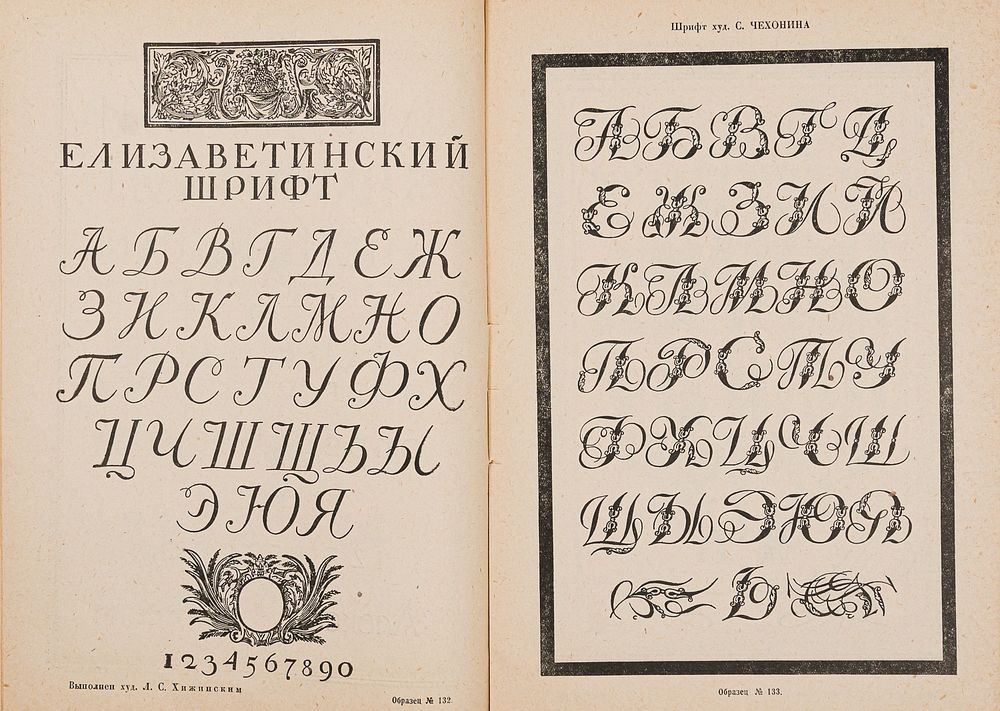 ЕЛИЗАВЕТИНСКИЙ
ШРИФТ
А Б В Г Д Е Ж
З И К Л М Н О
П Р С Т У Ф Х
Ц Ч Ш Щ Ъ Ы
Э Ю Я
1234567890
Выполнен худ. Л. С. Хижинским
Образец № 132.
Шрифт худ. С. ЧЕХОНИНА
А Б В Г Д
Е Ж З И Й
К Л М Н О
П Р С Т У
Ф Х Ц Ч Ш
Щ Ы Э Ю Я
Ь
Образец № 133.